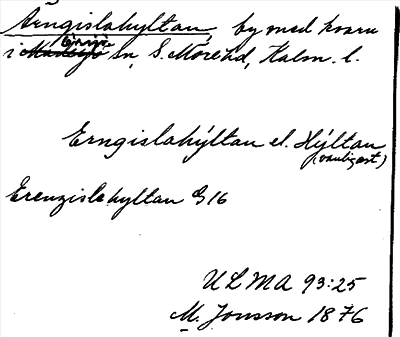 Ärngislahyltan, by med kvarn
i Gårdsjö sn, S. Möre hd, Kalm. l.
Erngislahýltan el. Hýltan
(vanligast)
Erengislehyltan G 16
ULMA 93:25
M. Jonsson 1876